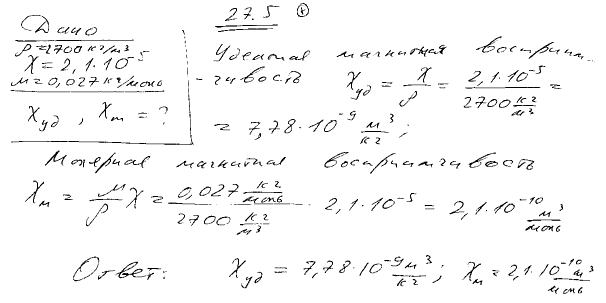 27.5
Дано
ρ = 2700 кг/м³
χ = 2,1·10⁻⁵
μ = 0,027 кг/моль
χуд, χm = ?
Удельная магнитная восприим-
-чивость χуд = χ/ρ = 2,1·10⁻⁵ / 2700 кг/м³ =
= 7,78·10⁻⁹ м³/кг;
Молярная магнитная восприимчивость
χм = μ/ρ χ = 0,027 кг/моль / 2700 кг/м³ · 2,1·10⁻⁵ = 2,1·10⁻¹⁰ м³/моль
Ответ: χуд = 7,78·10⁻⁹ м³/кг; χм = 2,1·10⁻¹⁰ м³/моль